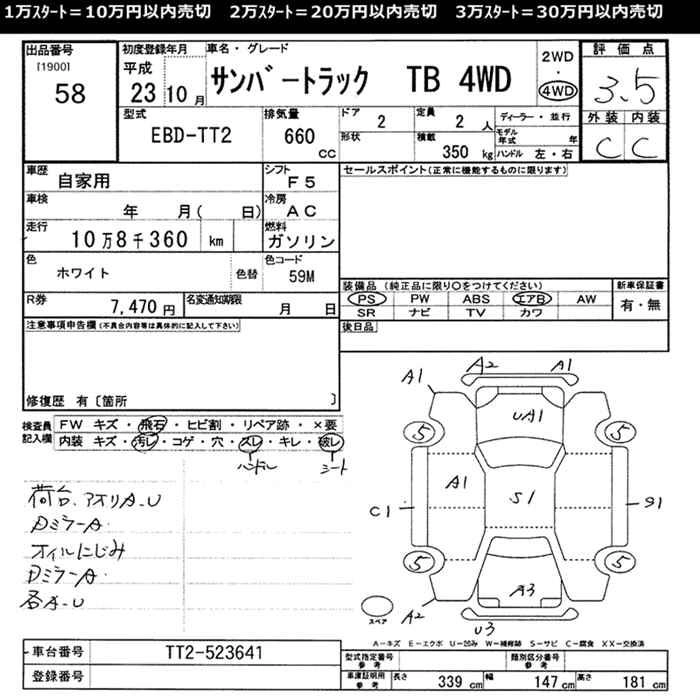 1万ｽﾀｰﾄ＝10万円以内売切　2万ｽﾀｰﾄ＝20万円以内売切　3万ｽﾀｰﾄ＝30万円以内売切
出品番号
[1900]
58
初度登録年月
平成
23 10 月
車名・グレード
サンバートラック TB 4WD
2WD
・
4WD
評価点
3.5
外装 内装
C C
型式
EBD-TT2
排気量
660
CC
ドア
2
形状
定員
2 人
積載
350 kg
ディーラー・並行
モデル年式 年
ハンドル 左・右
車歴
自家用
シフト
F5
車検
年 月( 日)
冷房
AC
走行
10万8千360 km
燃料
ガソリン
色
ホワイト
色替
色コード
59M
R券
7,470 円
名変通知期限
月 日
セールスポイント(正常に機能するものに限ります)
装備品 (純正品に限り○をつけてください)
PS PW ABS エアB AW
SR ナビ TV カワ
新車保証書
有・無
後日品
注意事項申告欄(不具合内容等は具体的に記入して下さい)
修復歴 有〔箇所 〕
検査員記入欄
FW キズ・飛石・ヒビ割・リペア跡・×要
内装 キズ・汚レ・コゲ・穴・スレ・キレ・破レ
ハンドル シート
荷台、アオリA-U
Dミラ-A
オイルにじみ
Dミラ-A
各A-U
A1 A2 A1
UA1
5 5
A1
S1
C1 S1
5 5
A3
A2
U3
スペア
A－キズ E－エクボ U－凹み W－補修跡 S－サビ C－腐食 XX－交換済
車台番号
TT2-523641
登録番号
型式指定番号
参考
類別区分番号
参考
車庫証明用
参考
長さ 339 cm 幅 147 cm 高さ 181 cm